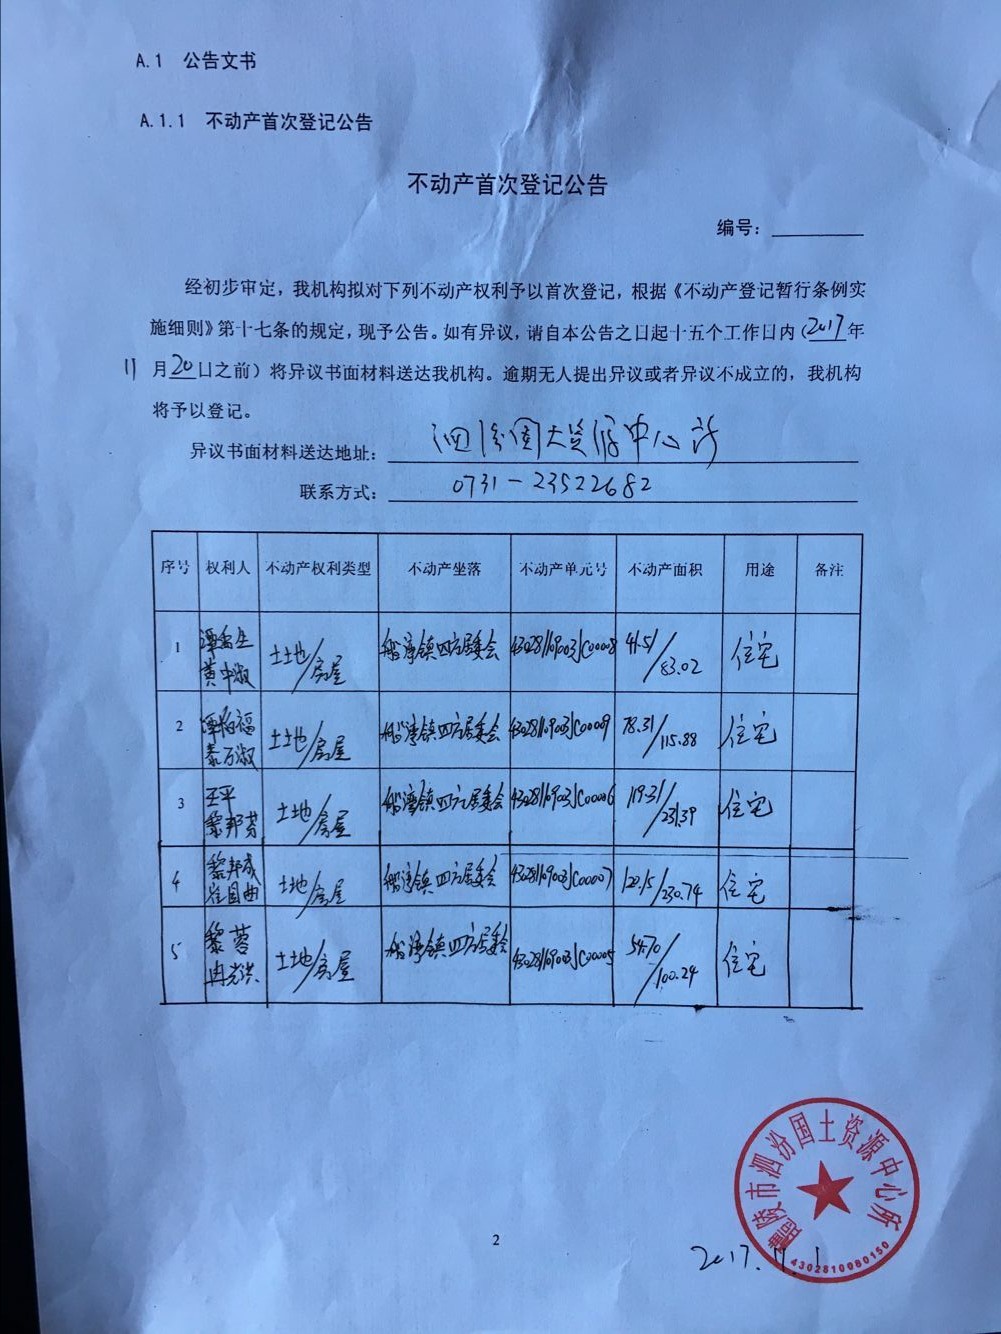 A.1 公告文书
A.1.1 不动产首次登记公告
不动产首次登记公告
编号：
经初步审定，我机构拟对下列不动产权利予以首次登记，根据《不动产登记暂行条例实
施细则》第十七条的规定，现予公告。如有异议，请自本公告之日起十五个工作日内（2017年
11月20日之前）将异议书面材料送达我机构。逾期无人提出异议或者异议不成立的，我机构
将予以登记。
异议书面材料送达地址：泗汾国土资源中心所
联系方式：0731-23522682
序号 权利人 不动产权利类型 不动产坐落 不动产单元号 不动产面积 用途 备注
1 黄中淑 土地/房屋 船湾镇四方居委会 430281109003JC00008 41.51/83.02 住宅
2 土地/房屋 船湾镇四方居委会 430281109003JC00009 78.31/115.88 住宅
3 王平 黎邦芬 土地/房屋 船湾镇四方居委会 430281109003JC00006 119.31/231.39 住宅
4 黎邦成 土地/房屋 船湾镇四方居委会 430281109003JC00007 122.15/230.74 住宅
5 黎蓉 土地/房屋 船湾镇四方居委会 430281109003JC00005 54.70/100.24 住宅
醴陵市泗汾国土资源中心所
4302810080150
2017.11.1
2